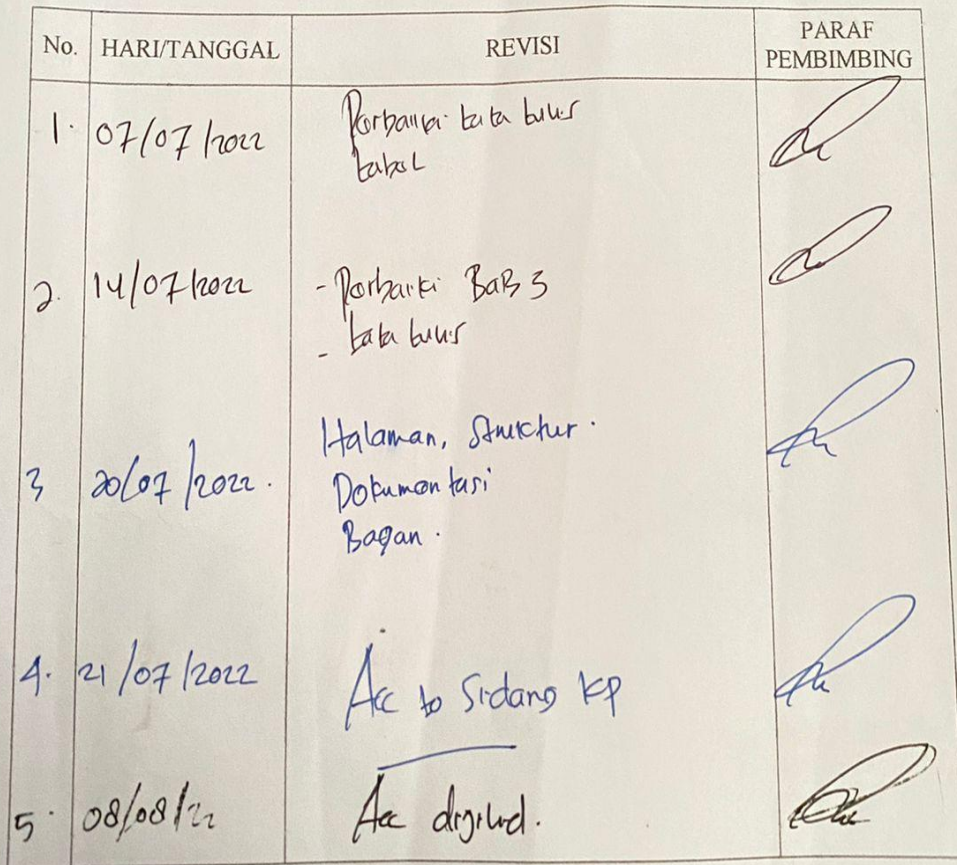 No. HARI/TANGGAL REVISI PARAF PEMBIMBING
1. 07/07/2022 Perbaiki tata tulis
tabel
2. 14/07/2022 - Perbaiki BAB 3
- tata tulis
Halaman, Struktur.
3 20/07/2022. Dokumentasi
Bagan.
4. 21/07/2022 Acc to Sidang KP
5. 08/08/22 Acc